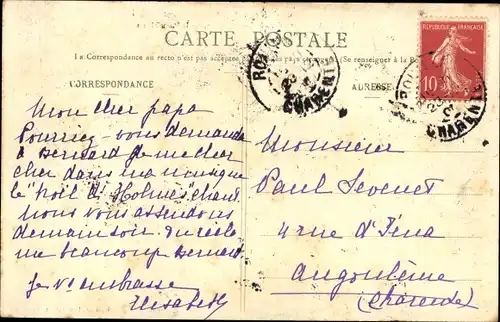 CARTE POSTALE
La Correspondance au recto n'est pas acceptée pays étrangers (Se renseigner à la
CORRESPONDANCE
ADRESSE
RÉPUBLIQUE FRANÇAISE
10
CHARENTE
CHARENTE
Mon cher papa
Pourriez-vous demander
à Bernard de me cher
cher dans ma musique
le "Noël d'Holmes" chant
Nous vous attendons
demain soir.
me beaucoup Bernard
Je vs embrasse
Elisabeth
Monsieur
Paul Sevenet
4 rue d'Iéna
Angoulême
(Charente)